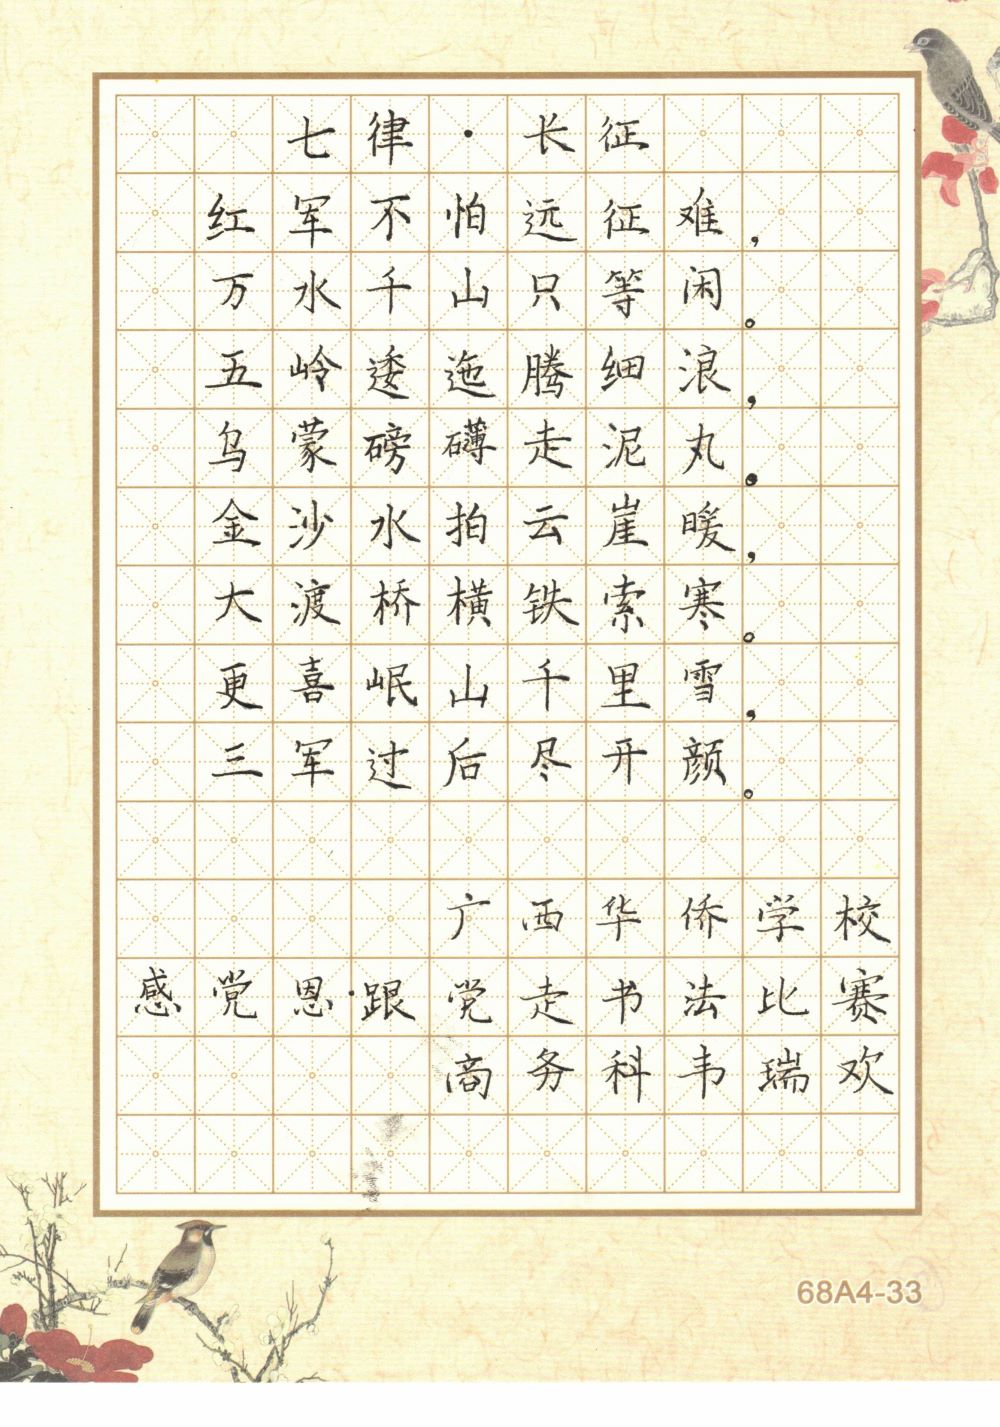 七律·长征
红军不怕远征难，
万水千山只等闲。
五岭逶迤腾细浪，
乌蒙磅礴走泥丸。
金沙水拍云崖暖，
大渡桥横铁索寒。
更喜岷山千里雪，
三军过后尽开颜。
广西华侨学校
感党恩·跟党走书法比赛
商务科韦瑞欢
68A4-33